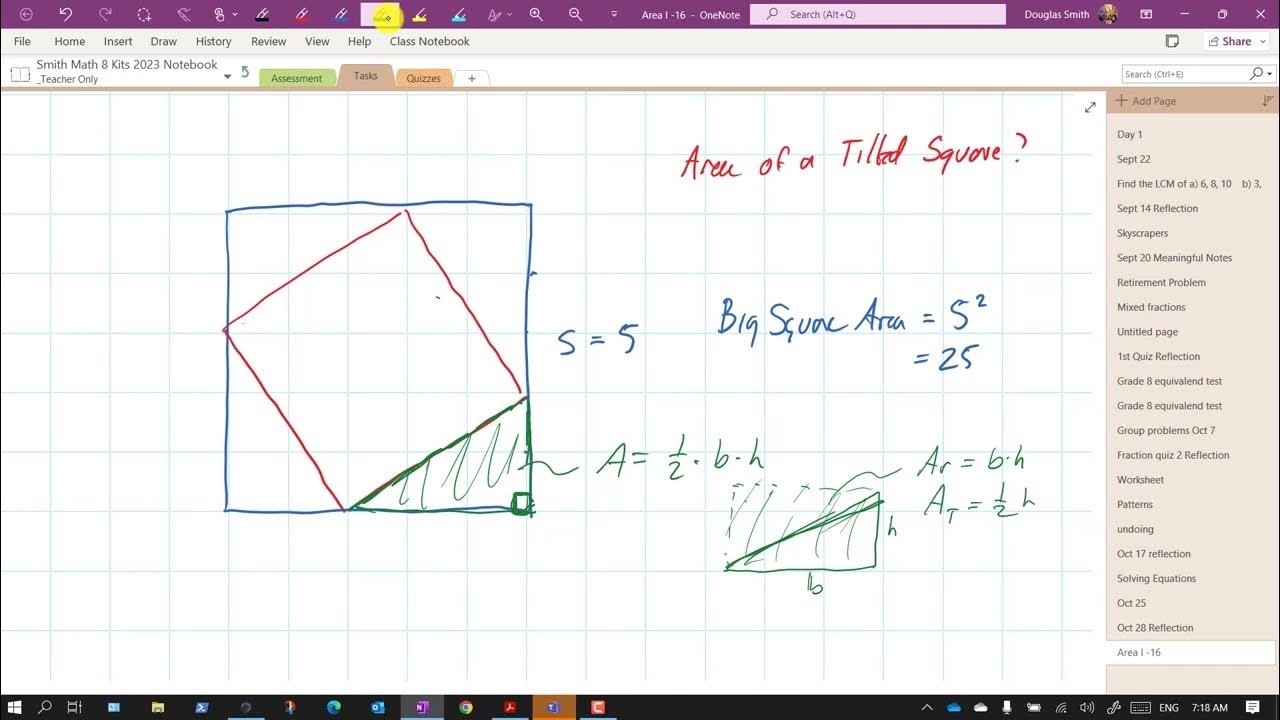 Area I -16 - OneNote
Search (Alt+Q)
Douglas Smith
File Home Insert Draw History Review View Help Class Notebook
Share
Smith Math 8 Kits 2023 Notebook
_Teacher Only
5
Assessment Tasks Quizzes +
Search (Ctrl+E)
Add Page
Day 1
Sept 22
Find the LCM of a) 6, 8, 10 b) 3,
Sept 14 Reflection
Skyscrapers
Sept 20 Meaningful Notes
Retirement Problem
Mixed fractions
Untitled page
1st Quiz Reflection
Grade 8 equivalend test
Grade 8 equivalend test
Group problems Oct 7
Fraction quiz 2 Reflection
Worksheet
Patterns
undoing
Oct 17 reflection
Solving Equations
Oct 25
Oct 28 Reflection
Area I -16
Area of a Tilted Square?
S = 5
Big Square Area = 5²
= 25
A = 1/2 · b · h
Ar = b·h
A_T = 1/2 h
h
b
ENG 7:18 AM